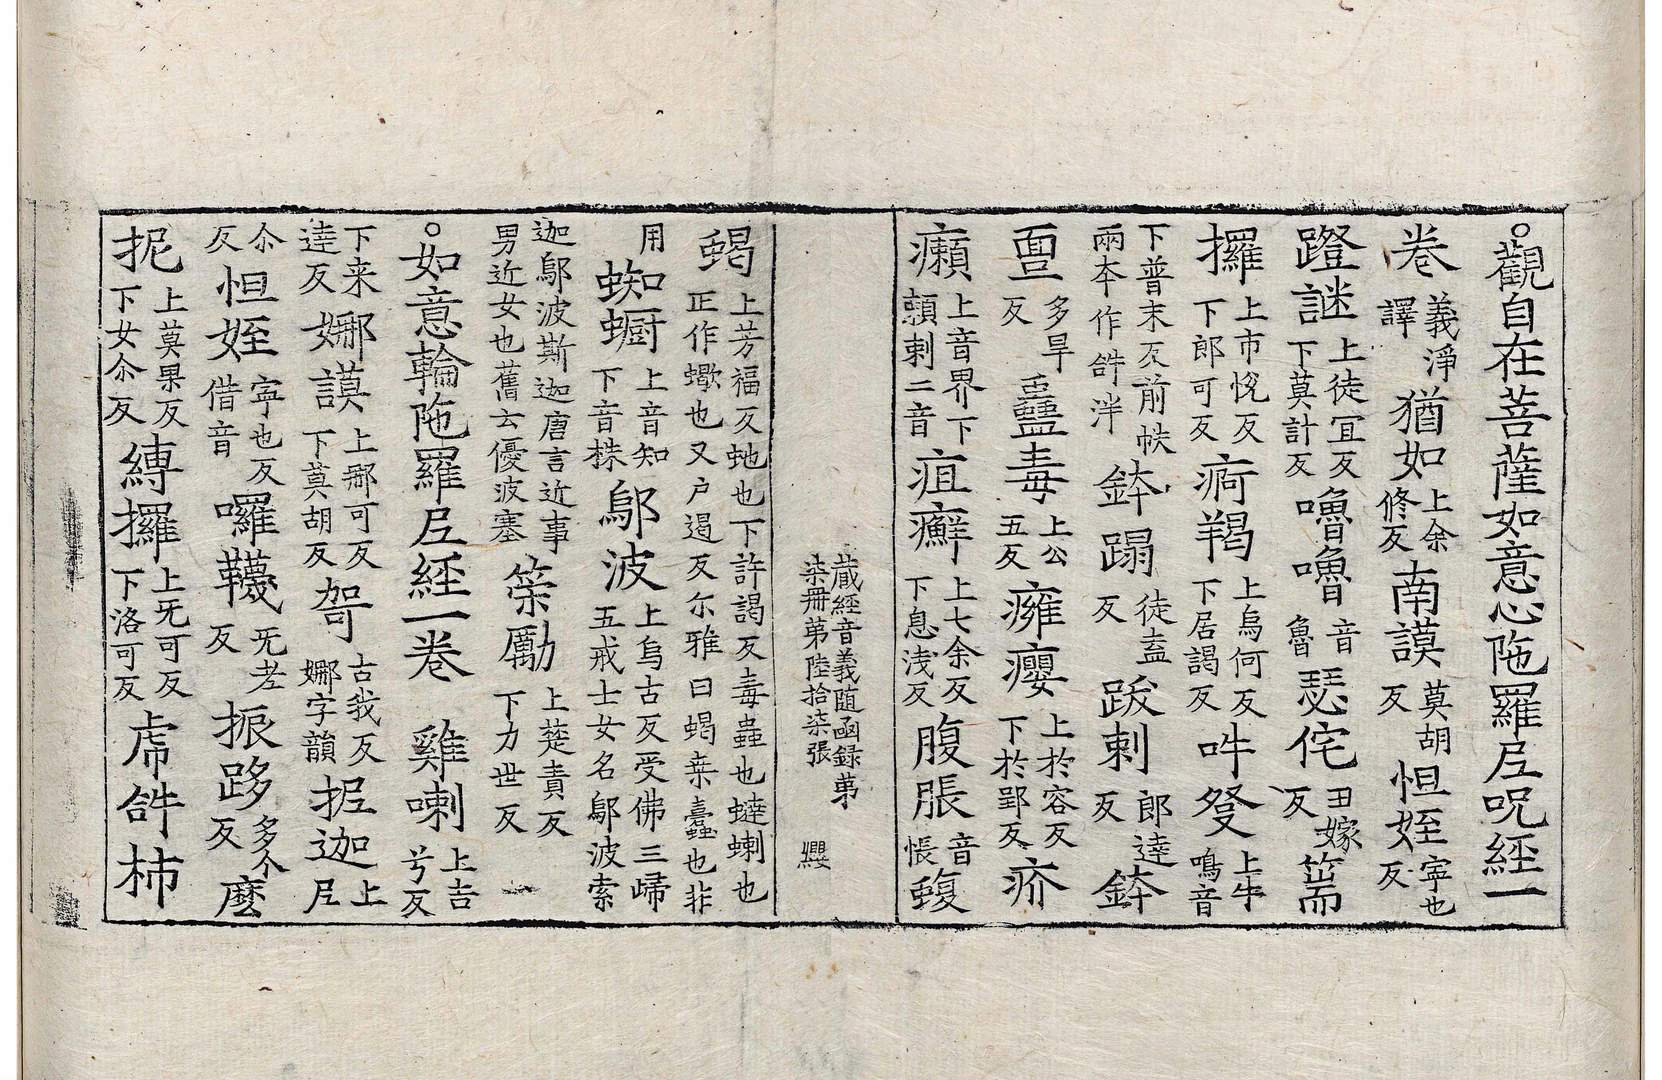 ○觀自在菩薩如意心陁羅尼呪經一
卷 義淨譯 猶如 上余修反 南謨 莫胡反 怛姪 寧也反
蹬謎 上徒亙反下莫計反 嚕嚕 音魯 瑟侘 丑嫁反 笍
攞 上市悅反下郎可反 痾羯 上烏何反下居謁反 吽發 上牛鳴音
下普末反前帙兩夲作䛐泮 鉢蹋 徒盍反 跋剌 郎達反 鉢
亶 多旱反 蠱毒 上公五反 癰癭 上於容反下於郢反 疥
癩 上音界下賴剌二音 疽癬 上七余反下息淺反 腹脹 音悵 蝮
藏經音義随函録第
柒冊第陸拾柒張 纓
蝎 上芳福反虵也下許謁反毒蟲也蟽蝲也正作蠍也又户遏反尒雅曰蝎桒蠹也非
用 蜘蟵 上音知下音株 鄔波 上烏古反受佛三歸五戒士女名鄔波索
迦鄔波斯迦唐言近事男近女也舊云優波塞 䇿勵 上楚責反下力世反
○如意輪陁羅尼經一卷 雞喇 上吉兮反
下来逹反 娜謨 上那可反下莫胡反 哿 古我反娜字韻 抳迦 上尼
尒反 怛姪 寧也反借音 囉韈 无𠯗反 振跢 多个反 麼
抳 上莫果反下女尒反 縛攞 上无可反下洛可反 虎𤙖柿